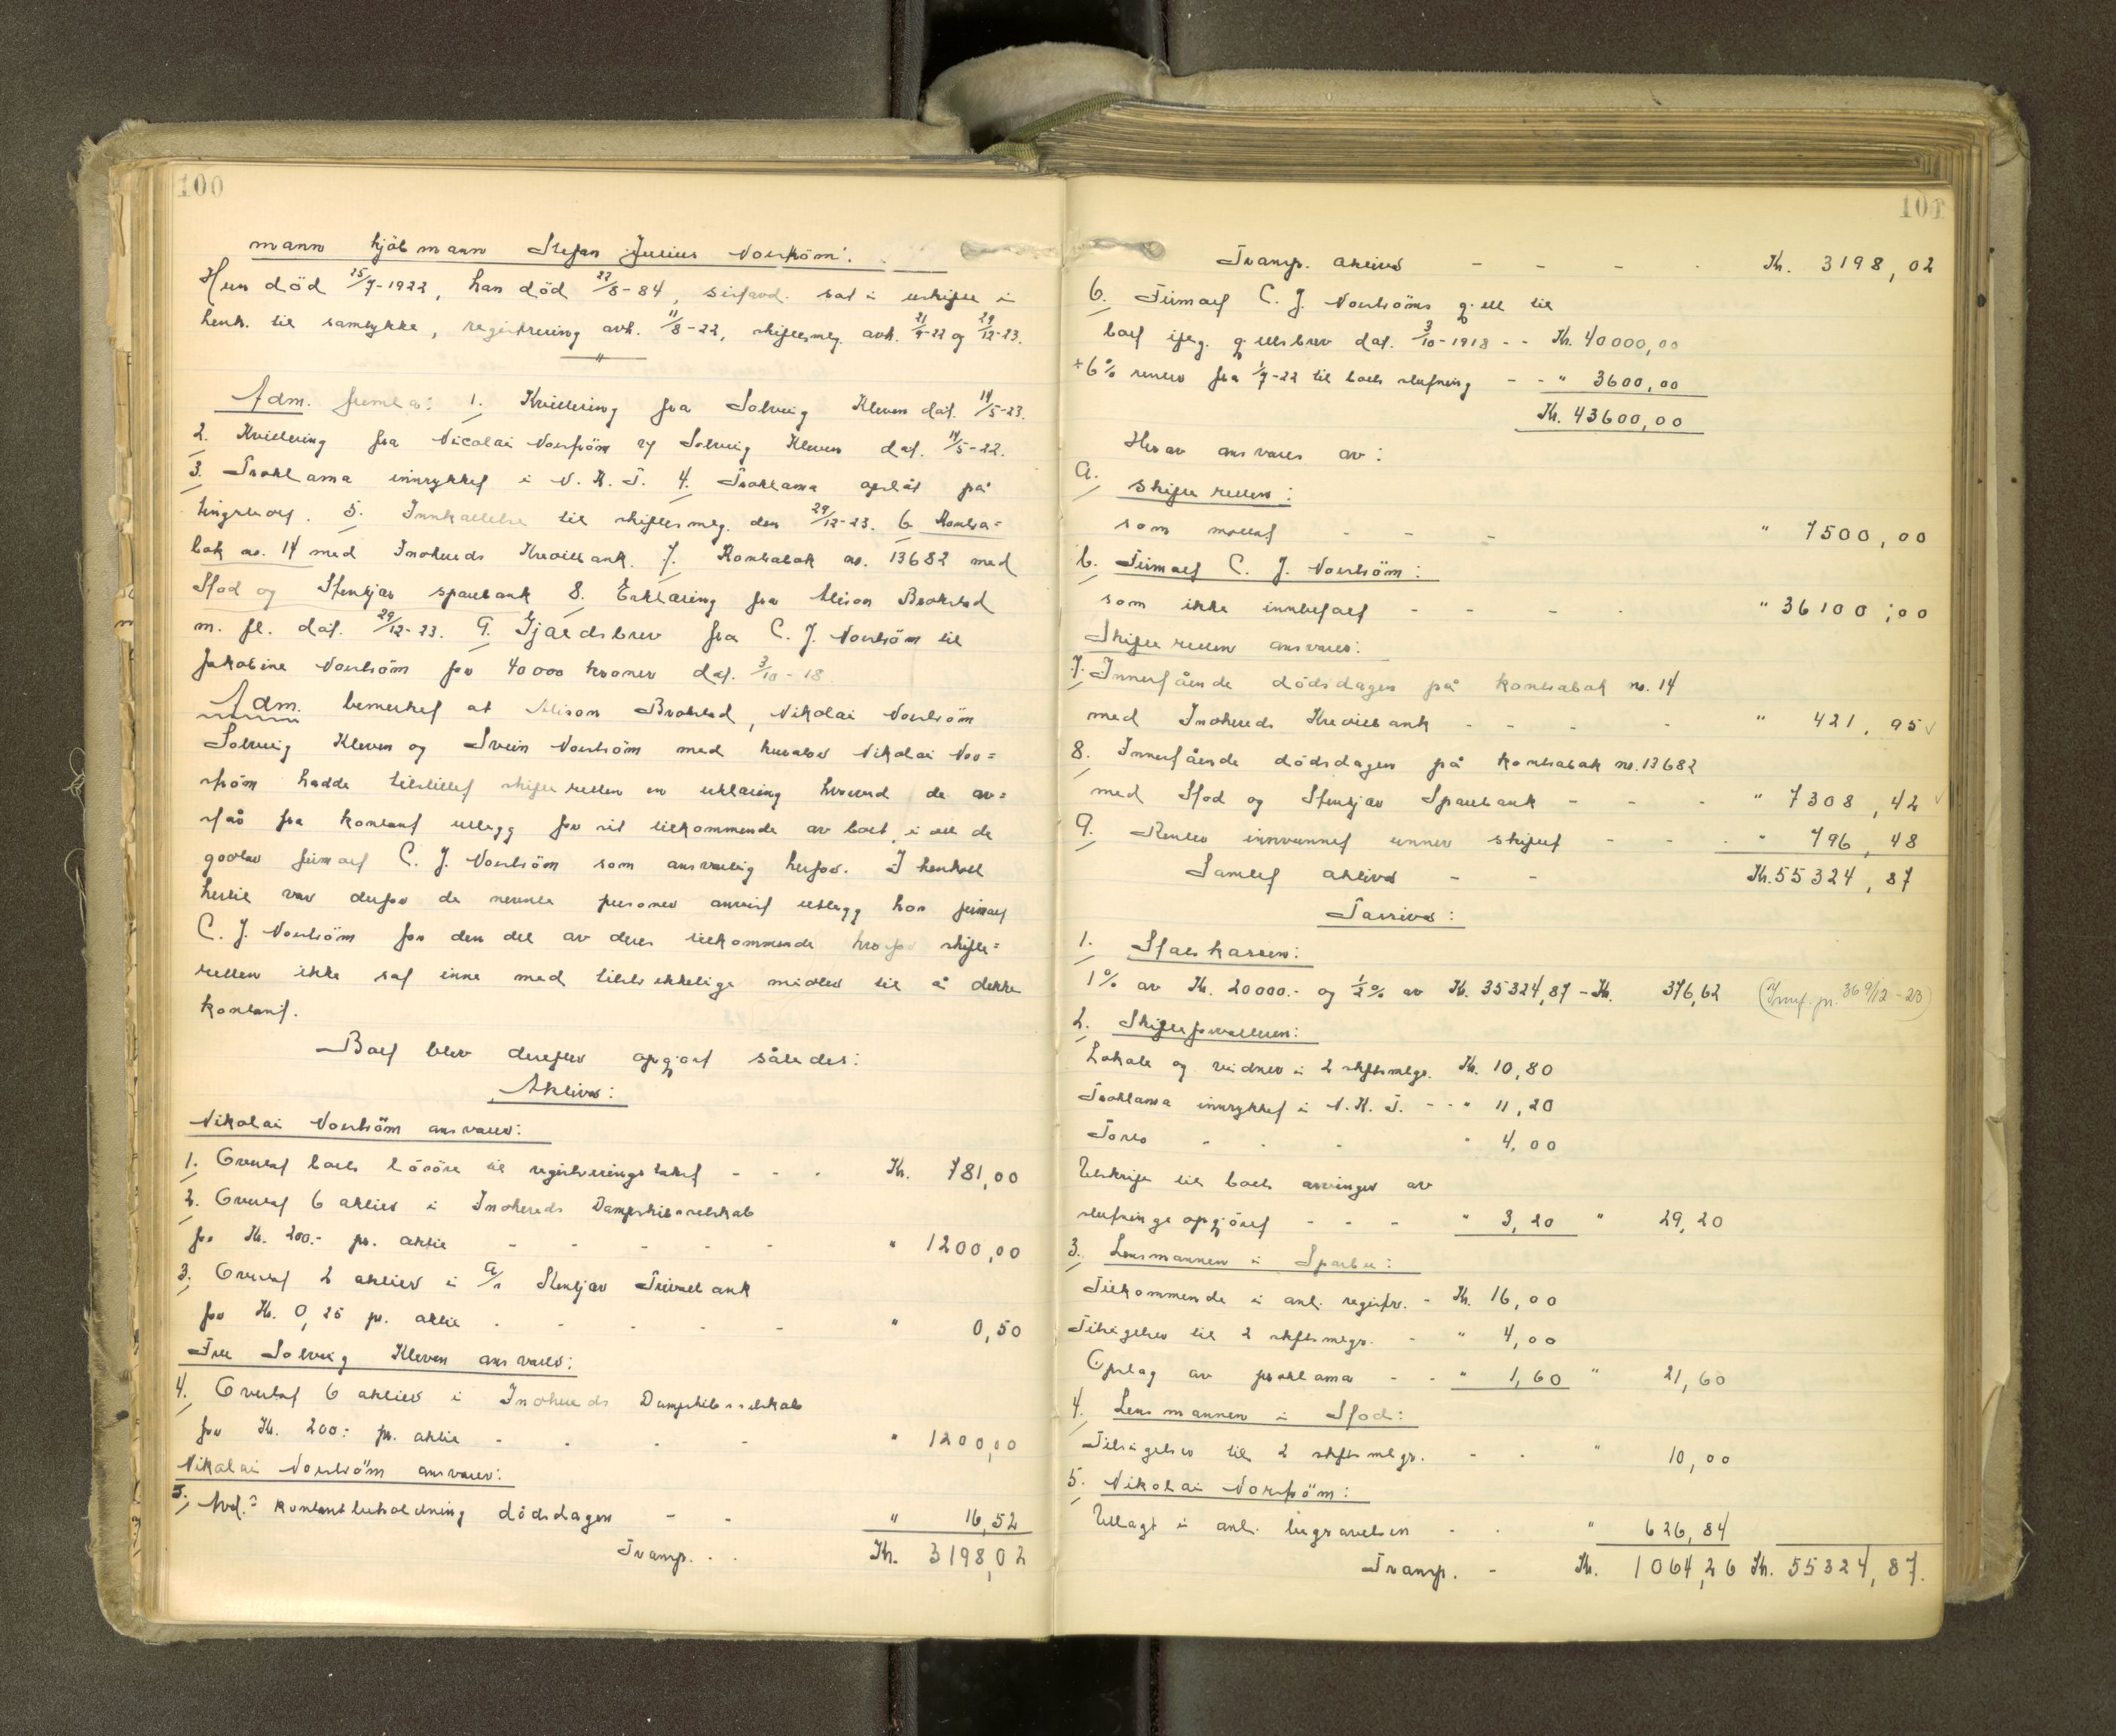 100
mann kjöbmann Stefan Julius Norström.
Hun död 25/7-1922, han död 22/8-84, sistnevnt. sat i uskifte i
henh. til samtykke, registrering avh. 11/8-22, skiftesmlg. avh. 21/9-22 og 29/12-23.
Adm. fremla: 1. Kvittering fra Solveig Kleven dat. 14/5-23.
2. Kvittering fra Nicolai Norström og Solveig Kleven dat. 14/5-22.
3. Proklama innrykket i N. K. T. 4. Proklama opslåt på
tingstuet. 5. Innkallelse til skiftesmlg. den 29/12-23. 6. Kontra=
bok no. 14 med Inohereds Kreditbank. 7. Kontrabok no. 13682 med
Stod og Stenkjær sparebank 8. Erklæring fra Alison Brokstad
m. fl. dat. 29/12-23. 9. Gjældsbrev fra C. J. Norström til
Jakobine Norström for 40000 kroner dat. 3/10-18
Adm. bemerket at Alison Brokstad, Nikolai Norström
Solveig Kleven og Svein Norström med hustru Nikolai Nor=
ström hadde tilstillet skifteretten en erklæring hvorved de av=
står fra kontant utlegg for sit tilkommende av boet, i det de
godtar firmaet C. J. Norström som ansvarlig herfor. I henhold
hertil var derfor de nevnte personer anvist utlegg hos firmaet
C. J. Norström for den del av deres tilkommende hvorfor skifte=
retten ikke sat inne med tilstrekkelige midler til å dekke
kontant.
Boet blev derefter opgjort således:
Aktiva:
Nikolai Norström ansvarer:
1. Overtat boets lösöre til registreringstakst - - - Kr. 781,00
2. Overtat 6 aktier i Inohereds Dampskibsselskab
for Kr. 200.- pr. aktie - - - - - " 1200,00
3. Overtat 2 aktier i A/s Stenkjær Privatbank
for Kr. 0,25 pr. aktie - - - - - " 0,50
Fru Solveig Kleven ansvarer:
4. Overtat 6 aktier i Inohereds Dampskibsselskab
for Kr. 200: pr. aktie - - - - " 1200,00
Nikolai Norström ansvarer:
5. Avd.s kontantbeholdning dödsdagen - - " 16,52
Transp. - - Kr. 3198,02
101
Transp. aktiva - - - - Kr. 3198,02
6. Firmaet C. J. Norströms gjeld til
boet ifølg. gjeldsbrev dat. 3/10-1918 - - Kr. 40000,00
+ 6% renter fra 1/7-22 til boets slutning - - " 3600,00
Kr. 43600,00
Herav ansvares av:
a. Skifteretten:
som mottat - - - " 7500,00
b. Firmaet C. J. Norström:
som ikke innbetalt - - - - " 36100,00
Skifteretten ansvarer:
7. Innestående dödsdagen på kontrabok no. 14
med Inohereds Kreditbank - - - - " 421,95 ✓
8. Innestående dödsdagen på kontrabok no. 13682
med Stod og Stenkjær Sparebank - - - " 7308,42 ✓
9. Renter innvunnet under skiftet - - - " 796,48
Samlet aktiva - - Kr. 55324,87
Passiva:
1. Statskassen:
1% av Kr. 20000.- og ½% av Kr. 35324,87 - Kr. 376,62 (Innf. pr. 369/12-23)
2. Skifteforvalteren:
Lokale og vidner i 2 skftsmlgr. Kr. 10,80
Proklama innrykket i N. K. T. - - " 11,20
Porto - - - " 4,00
Utskrift til boets arvinger av
slutningsopgjöret - - - " 3,20 " 29,20
3. Lensmannen i Sparbu:
Tilkommende i anl. registr. - Kr. 16,00
Tilsigelser til 2 skftsmlgr. - " 4,00
Opslag av proklama - - " 1,60 " 21,60
4. Lensmannen i Stod:
Tilsigelser til 2 skftsmlgr. - - " 10,00
5. Nikolai Norström:
Utlagt i anl. begravelsen - - " 626,84
Transp. - Kr. 1064,26 Kr. 55324,87.